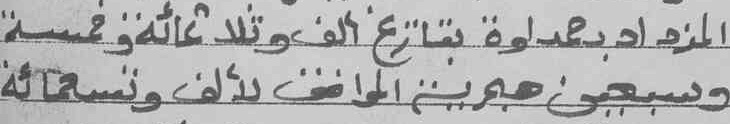 المزداد بحمداوة بتاريخ ألف وثلاثمائة وخمسة
وسبعين هجرية الموافق لألف وتسعمائة